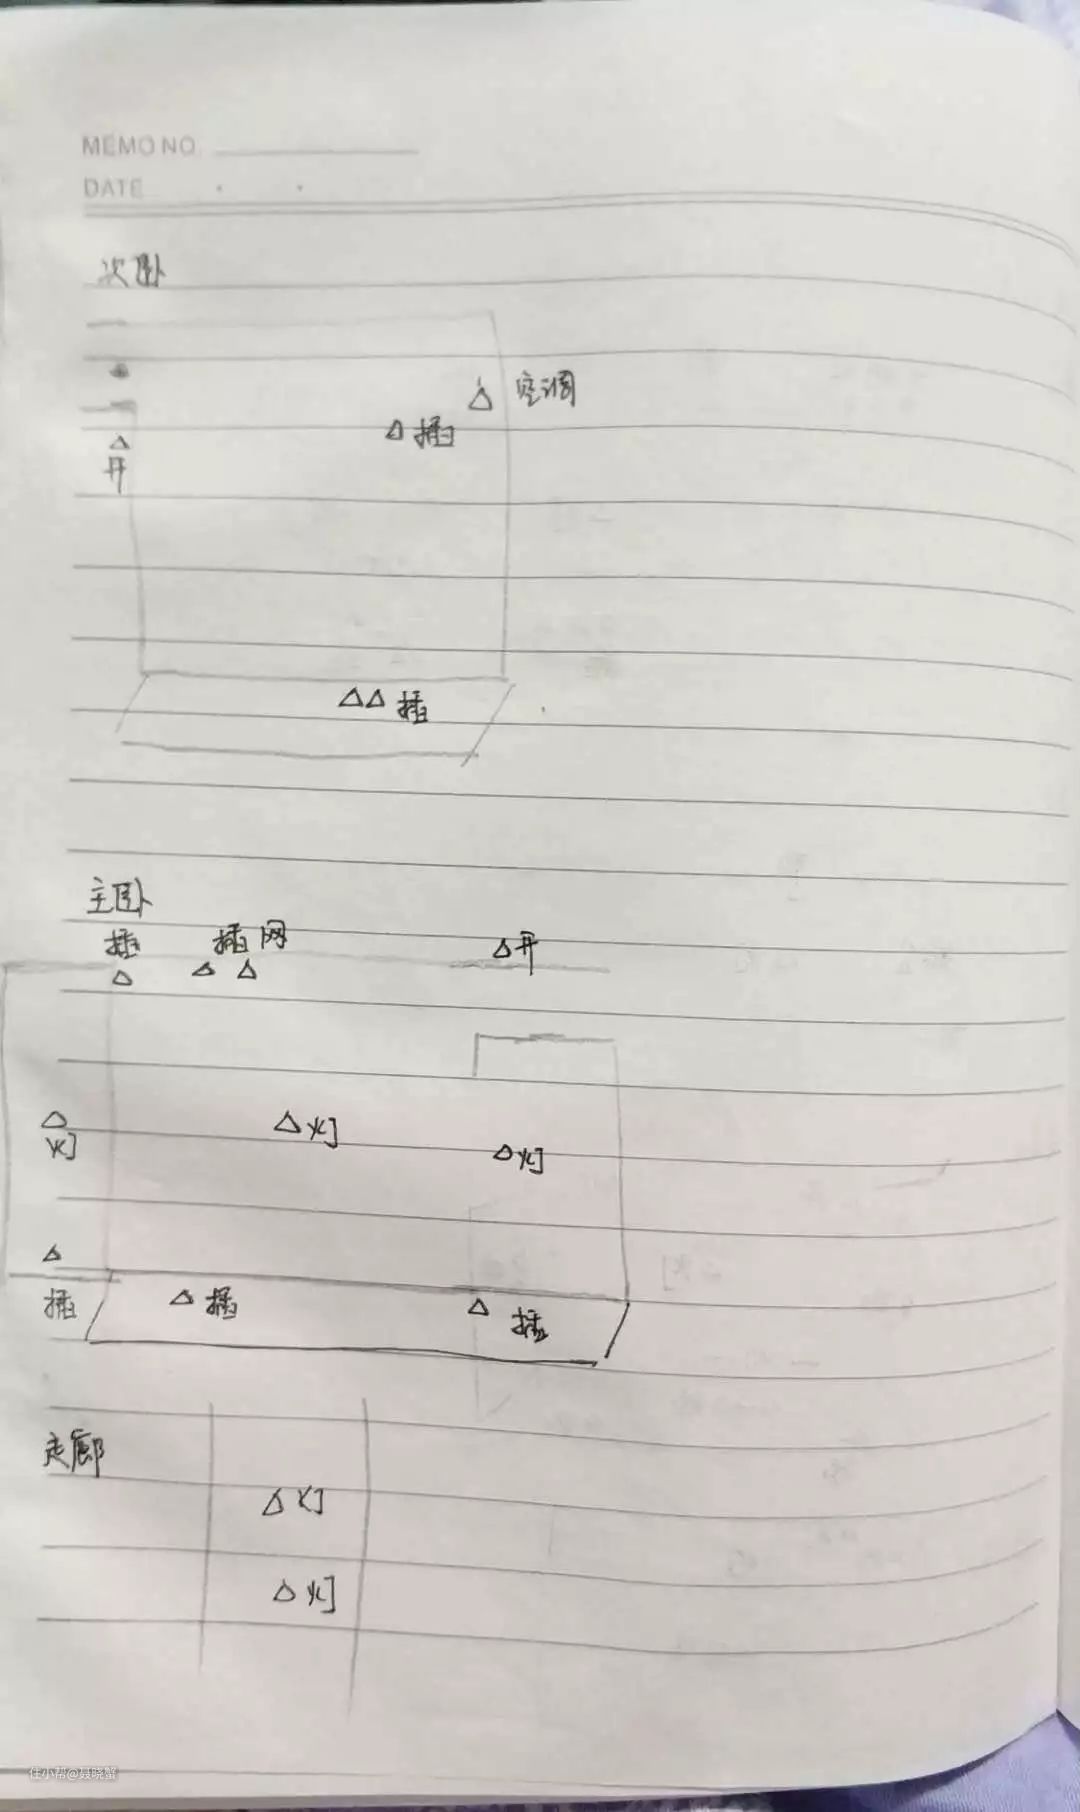 MEMO NO.
DATE
次卧
△ 空调
△ 插
△
开
△△ 插
主卧
插 插 网 △开
△ △ △
△ △灯
灯 △灯
△
插 △ 插 △ 插
走廊
△ 灯
△ 灯
住小帮@聂晓蟹